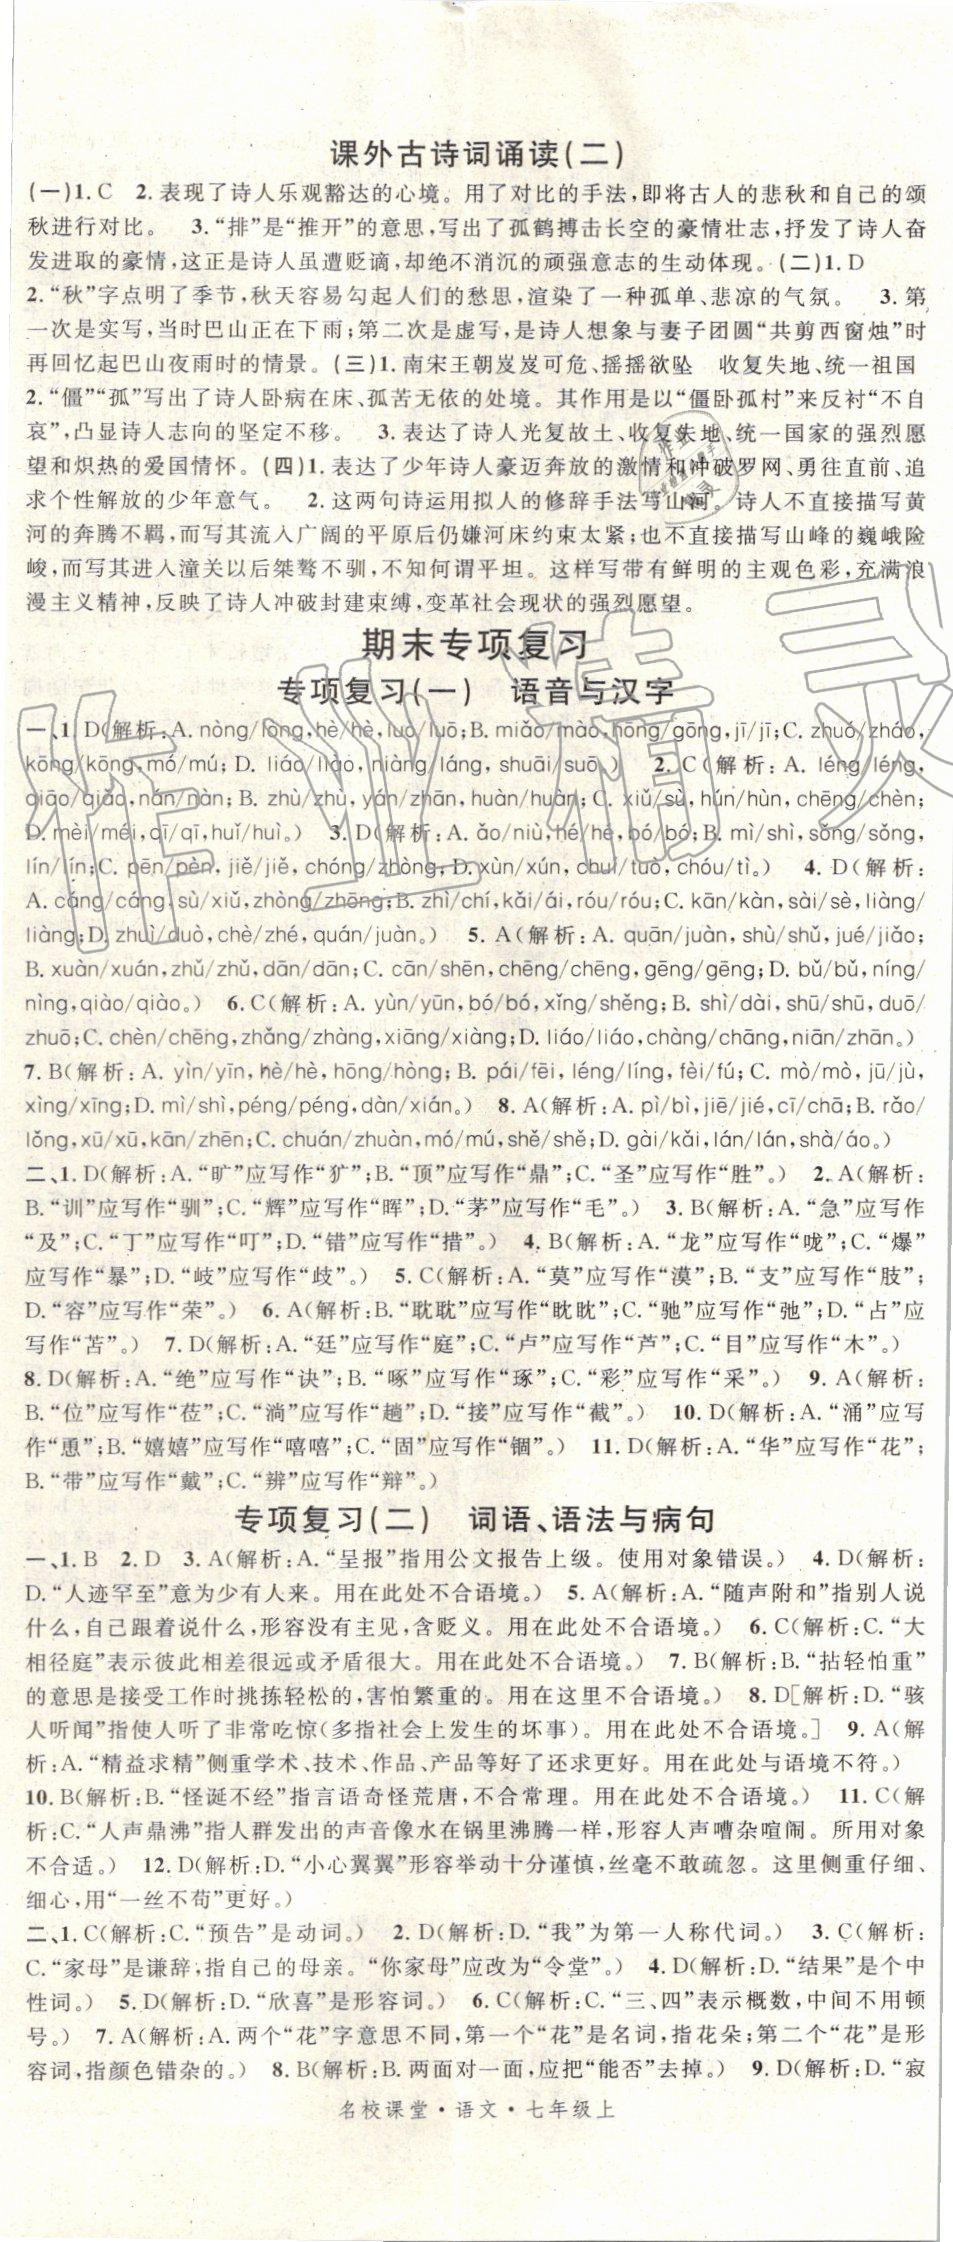 课外古诗词诵读(二)
(一)1. C 2. 表现了诗人乐观豁达的心境。用了对比的手法,即将古人的悲秋和自己的颂
秋进行对比。 3. “排”是“推开”的意思,写出了孤鹤搏击长空的豪情壮志,抒发了诗人奋
发进取的豪情,这正是诗人虽遭贬谪,却绝不消沉的顽强意志的生动体现。(二)1. D
2. “秋”字点明了季节,秋天容易勾起人们的愁思,渲染了一种孤单、悲凉的气氛。 3. 第
一次是实写,当时巴山正在下雨;第二次是虚写,是诗人想象与妻子团圆“共剪西窗烛”时
再回忆起巴山夜雨时的情景。(三)1. 南宋王朝岌岌可危、摇摇欲坠 收复失地、统一祖国
2. “僵”“孤”写出了诗人卧病在床、孤苦无依的处境。其作用是以“僵卧孤村”来反衬“不自
哀”,凸显诗人志向的坚定不移。 3. 表达了诗人光复故土、收复失地、统一国家的强烈愿
望和炽热的爱国情怀。(四)1. 表达了少年诗人豪迈奔放的激情和冲破罗网、勇往直前、追
求个性解放的少年意气。 2. 这两句诗运用拟人的修辞手法写山河。诗人不直接描写黄
河的奔腾不羁,而写其流入广阔的平原后仍嫌河床约束太紧;也不直接描写山峰的巍峨险
峻,而写其进入潼关以后桀骜不驯,不知何谓平坦。这样写带有鲜明的主观色彩,充满浪
漫主义精神,反映了诗人冲破封建束缚,变革社会现状的强烈愿望。
期末专项复习
专项复习(一) 语音与汉字
一、1. D(解析:A. nòng/lòng,hè/hè,luò/luō;B. miǎo/mào,hōng/gōng,jī/jī;C. zhuó/zháo,
kōng/kōng,mó/mú;D. liáo/liào,niàng/láng,shuāi/suō。) 2. C(解析:A. léng/léng,
qiāo/qiǎo,nán/nàn;B. zhù/zhù,yán/zhān,huàn/huàn;C. xiǔ/sù,hún/hùn,chēng/chèn;
D. mèi/méi,qī/qī,huǐ/huì。) 3. D(解析:A. ǎo/niù,hé/hé,bó/bó;B. mì/shì,sǒng/sǒng,
lín/lín;C. pēn/pèn,jiě/jiě,chóng/zhòng;D. xùn/xún,chuí/tuò,chóu/tì。) 4. D(解析:
A. cáng/cáng,sù/xiǔ,zhòng/zhōng;B. zhì/chí,kǎi/ái,róu/róu;C. kān/kàn,sài/sè,liàng/
liàng;D. zhuì/duò,chè/zhé,quán/juàn。) 5. A(解析:A. quān/juàn,shù/shǔ,jué/jiǎo;
B. xuàn/xuán,zhǔ/zhǔ,dān/dān;C. cān/shēn,chēng/chēng,gēng/gēng;D. bǔ/bǔ,níng/
nìng,qiào/qiào。) 6. C(解析:A. yùn/yūn,bó/bó,xǐng/shěng;B. shì/dài,shū/shū,duō/
zhuō;C. chèn/chēng,zhǎng/zhàng,xiāng/xiàng;D. liáo/liáo,chàng/chāng,niān/zhān。)
7. B(解析:A. yìn/yīn,hè/hè,hōng/hòng;B. pái/fēi,léng/líng,fèi/fú;C. mò/mò,jū/jù,
xìng/xīng;D. mì/shì,péng/péng,dàn/xián。) 8. A(解析:A. pì/bì,jiē/jié,cī/chā;B. rǎo/
lǒng,xū/xū,kān/zhēn;C. chuán/zhuàn,mó/mú,shě/shě;D. gài/kǎi,lán/lán,shà/áo。)
二、1. D(解析:A. “旷”应写作“犷”;B. “顶”应写作“鼎”;C. “圣”应写作“胜”。) 2. A(解析:
B. “训”应写作“驯”;C. “辉”应写作“晖”;D. “茅”应写作“毛”。) 3. B(解析:A. “急”应写作
“及”;C. “丁”应写作“叮”;D. “错”应写作“措”。) 4. B(解析:A. “龙”应写作“咙”;C. “爆”
应写作“暴”;D. “岐”应写作“歧”。) 5. C(解析:A. “莫”应写作“漠”;B. “支”应写作“肢”;
D. “容”应写作“荣”。) 6. A(解析:B. “耽耽”应写作“眈眈”;C. “驰”应写作“弛”;D. “占”应
写作“苫”。) 7. D(解析:A. “廷”应写作“庭”;C. “卢”应写作“芦”;C. “目”应写作“木”。)
8. D(解析:A. “绝”应写作“诀”;B. “啄”应写作“琢”;C. “彩”应写作“采”。) 9. A(解析:
B. “位”应写作“莅”;C. “淌”应写作“趟”;D. “接”应写作“截”。) 10. D(解析:A. “涌”应写
作“恿”;B. “嬉嬉”应写作“嘻嘻”;C. “固”应写作“锢”。) 11. D(解析:A. “华”应写作“花”;
B. “带”应写作“戴”;C. “辨”应写作“辩”。)
专项复习(二) 词语、语法与病句
一、1. B 2. D 3. A(解析:A. “呈报”指用公文报告上级。使用对象错误。) 4. D(解析:
D. “人迹罕至”意为少有人来。用在此处不合语境。) 5. A(解析:A. “随声附和”指别人说
什么,自己跟着说什么,形容没有主见,含贬义。用在此处不合语境。) 6. C(解析:C. “大
相径庭”表示彼此相差很远或矛盾很大。用在此处不合语境。) 7. B(解析:B. “拈轻怕重”
的意思是接受工作时挑拣轻松的,害怕繁重的。用在这里不合语境。) 8. D[解析:D. “骇
人听闻”指使人听了非常吃惊(多指社会上发生的坏事)。用在此处不合语境。] 9. A(解
析:A. “精益求精”侧重学术、技术、作品、产品等好了还求更好。用在此处与语境不符。)
10. B(解析:B. “怪诞不经”指言语奇怪荒唐,不合常理。用在此处不合语境。) 11. C(解
析:C. “人声鼎沸”指人群发出的声音像水在锅里沸腾一样,形容人声嘈杂喧闹。所用对象
不合适。) 12. D(解析:D. “小心翼翼”形容举动十分谨慎,丝毫不敢疏忽。这里侧重仔细、
细心,用“一丝不苟”更好。)
二、1. C(解析:C. “预告”是动词。) 2. D(解析:D. “我”为第一人称代词。) 3. C(解析:
C. “家母”是谦辞,指自己的母亲。“你家母”应改为“令堂”。) 4. D(解析:D. “结果”是个中
性词。) 5. D(解析:D. “欣喜”是形容词。) 6. C(解析:C. “三、四”表示概数,中间不用顿
号。) 7. A(解析:A. 两个“花”字意思不同,第一个“花”是名词,指花朵;第二个“花”是形
容词,指颜色错杂的。) 8. B(解析:B. 两面对一面,应把“能否”去掉。) 9. D(解析:D. “寂
名校课堂·语文·七年级上
作业精灵